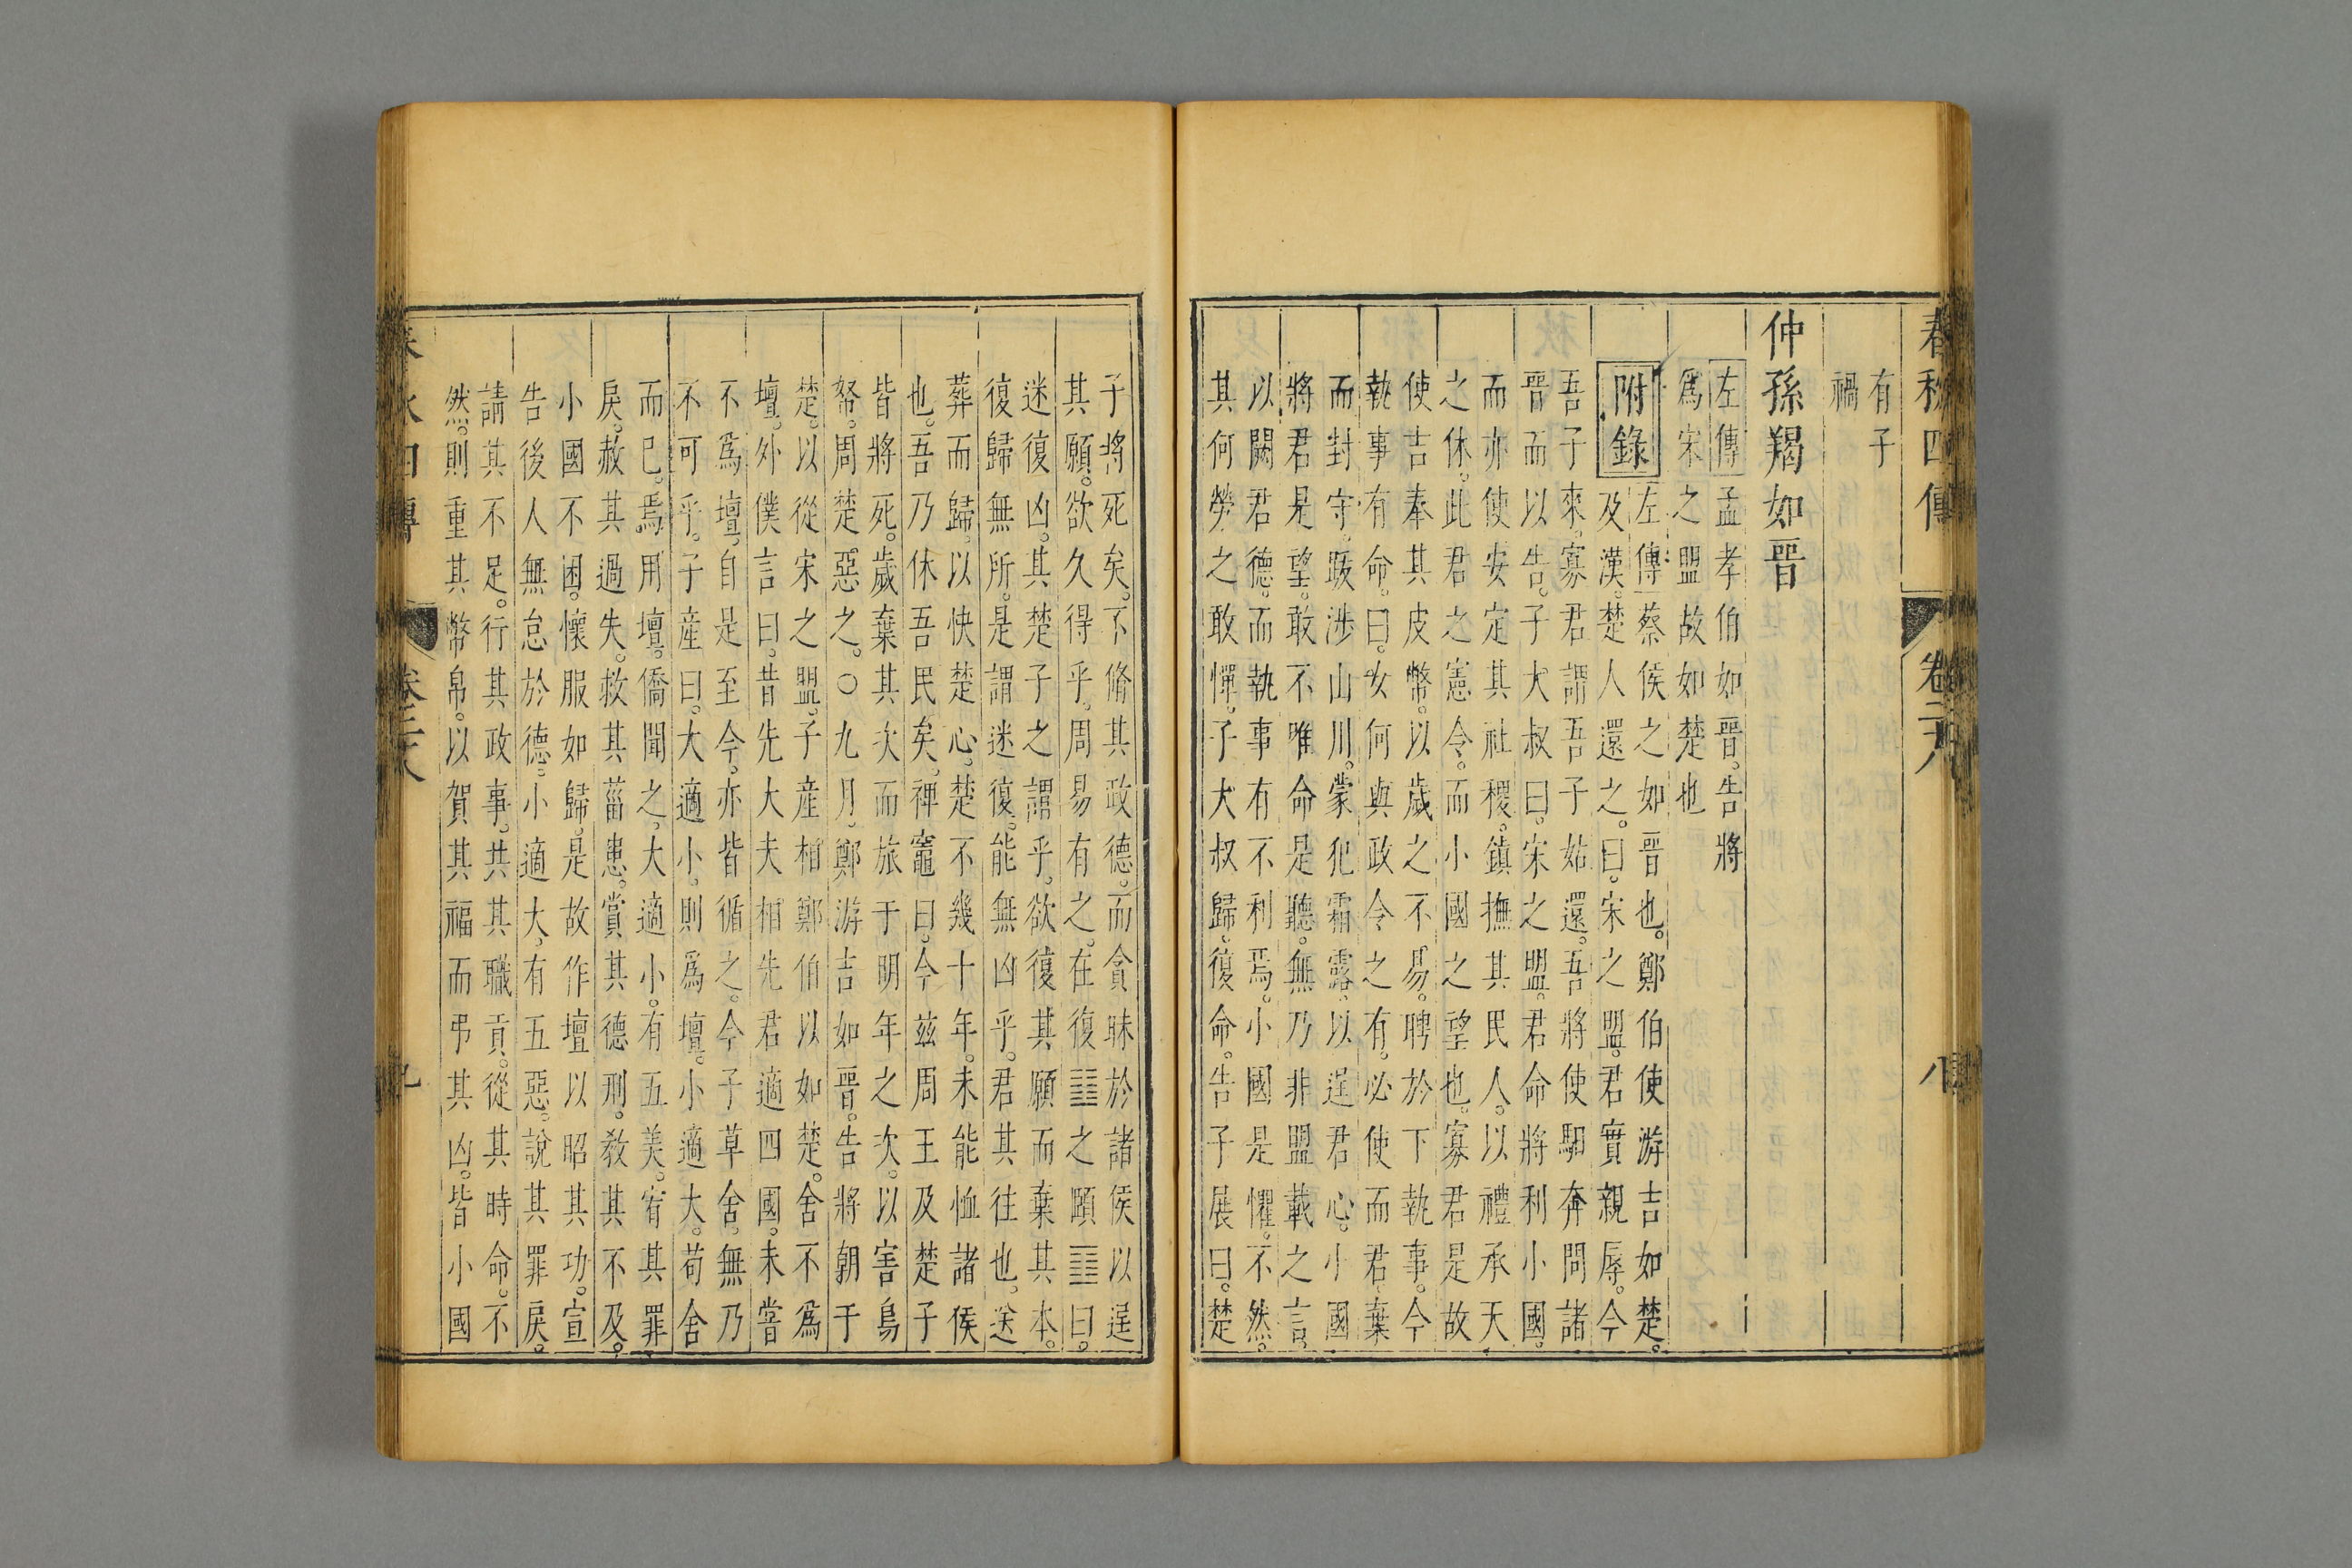 春秋四傳 卷二十八 八
有子
禍
仲孫羯如晉
左傳孟孝伯如晉。告將
爲宋之盟故如楚也
附錄左傳蔡侯之如晉也。鄭伯使游吉如楚。
及漢。楚人還之。曰。宋之盟。君實親辱。今
吾子來。寡君謂吾子姑還。吾將使馹奔問諸
晉而以告。子大叔曰。宋之盟。君命將利小國。
而亦使安定其社稷。鎮撫其民人。以禮承天
之休。此君之憲令。而小國之望也。寡君是故
使吉奉其皮幣。以歲之不易。聘於下執事。今
執事有命。曰。女何與政令之有。必使而君棄
而封守。跋涉山川。蒙犯霜露。以逞君心。小國
將君是望。敢不唯命是聽。無乃非盟載之言。
以闕君德。而執事有不利焉。小國是懼。不然。
其何勞之敢憚。子大叔歸。復命。告子展曰。楚
子將死矣。不脩其政德。而貪昧於諸侯以逞
其願。欲久得乎。周易有之。在復䷗之頤䷚曰。
迷復凶。其楚子之謂乎。欲復其願而棄其本。
復歸無所。是謂迷復。能無凶乎。君其往也。送
葬而歸。以快楚心。楚不幾十年。未能恤諸侯
也。吾乃休吾民矣。裨竈曰。今茲周王及楚子
皆將死。歲棄其次而旅于明年之次。以害鳥
帑。周楚惡之。○九月。鄭游吉如晉。告將朝于
楚。以從宋之盟。子產相鄭伯以如楚。舍不爲
壇。外僕言曰。昔先大夫相先君適四國。未嘗
不爲壇。自是至今。亦皆循之。今子草舍。無乃
不可乎。子產曰。大適小。則爲壇。小適大。苟舍
而已。焉用壇。僑聞之。大適小。有五美。宥其罪
戾。赦其過失。救其菑患。賞其德刑。教其不及。
小國不困。懷服如歸。是故作壇以昭其功。宣
告後人無怠於德。小適大。有五惡。說其罪戾。
請其不足。行其政事。共其職貢。從其時命。不
然。則重其幣帛。以賀其福而弔其凶。皆小國
春秋四傳 卷二十八 九